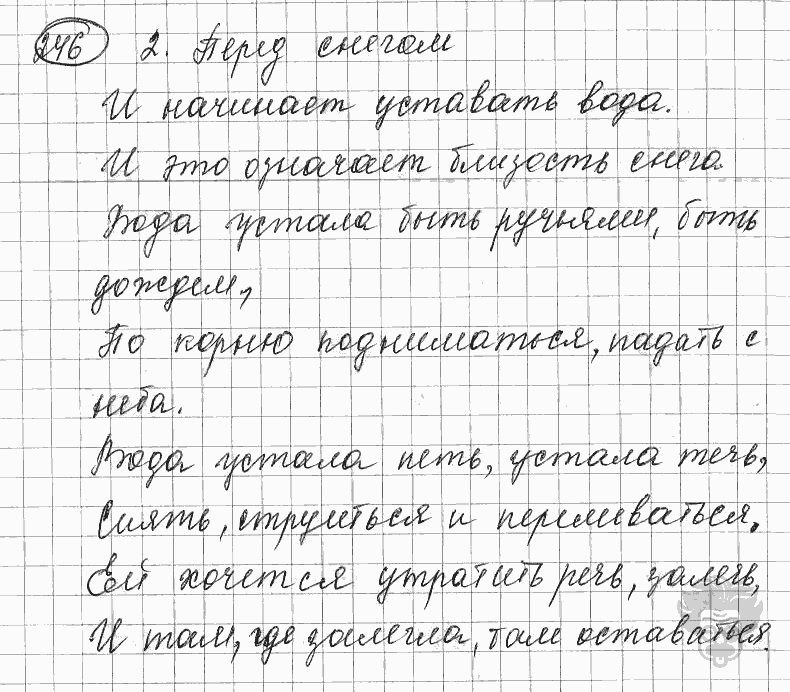 246 2. Перед снегом
И начинает уставать вода.
И это означает близость снега.
Вода устала быть ручьями, быть
дождем,
По корню подниматься, падать с
неба.
Вода устала петь, устала течь,
Сиять, струиться и переливаться.
Ей хочется утратить речь, залечь,
И там, где залегла, там оставаться.